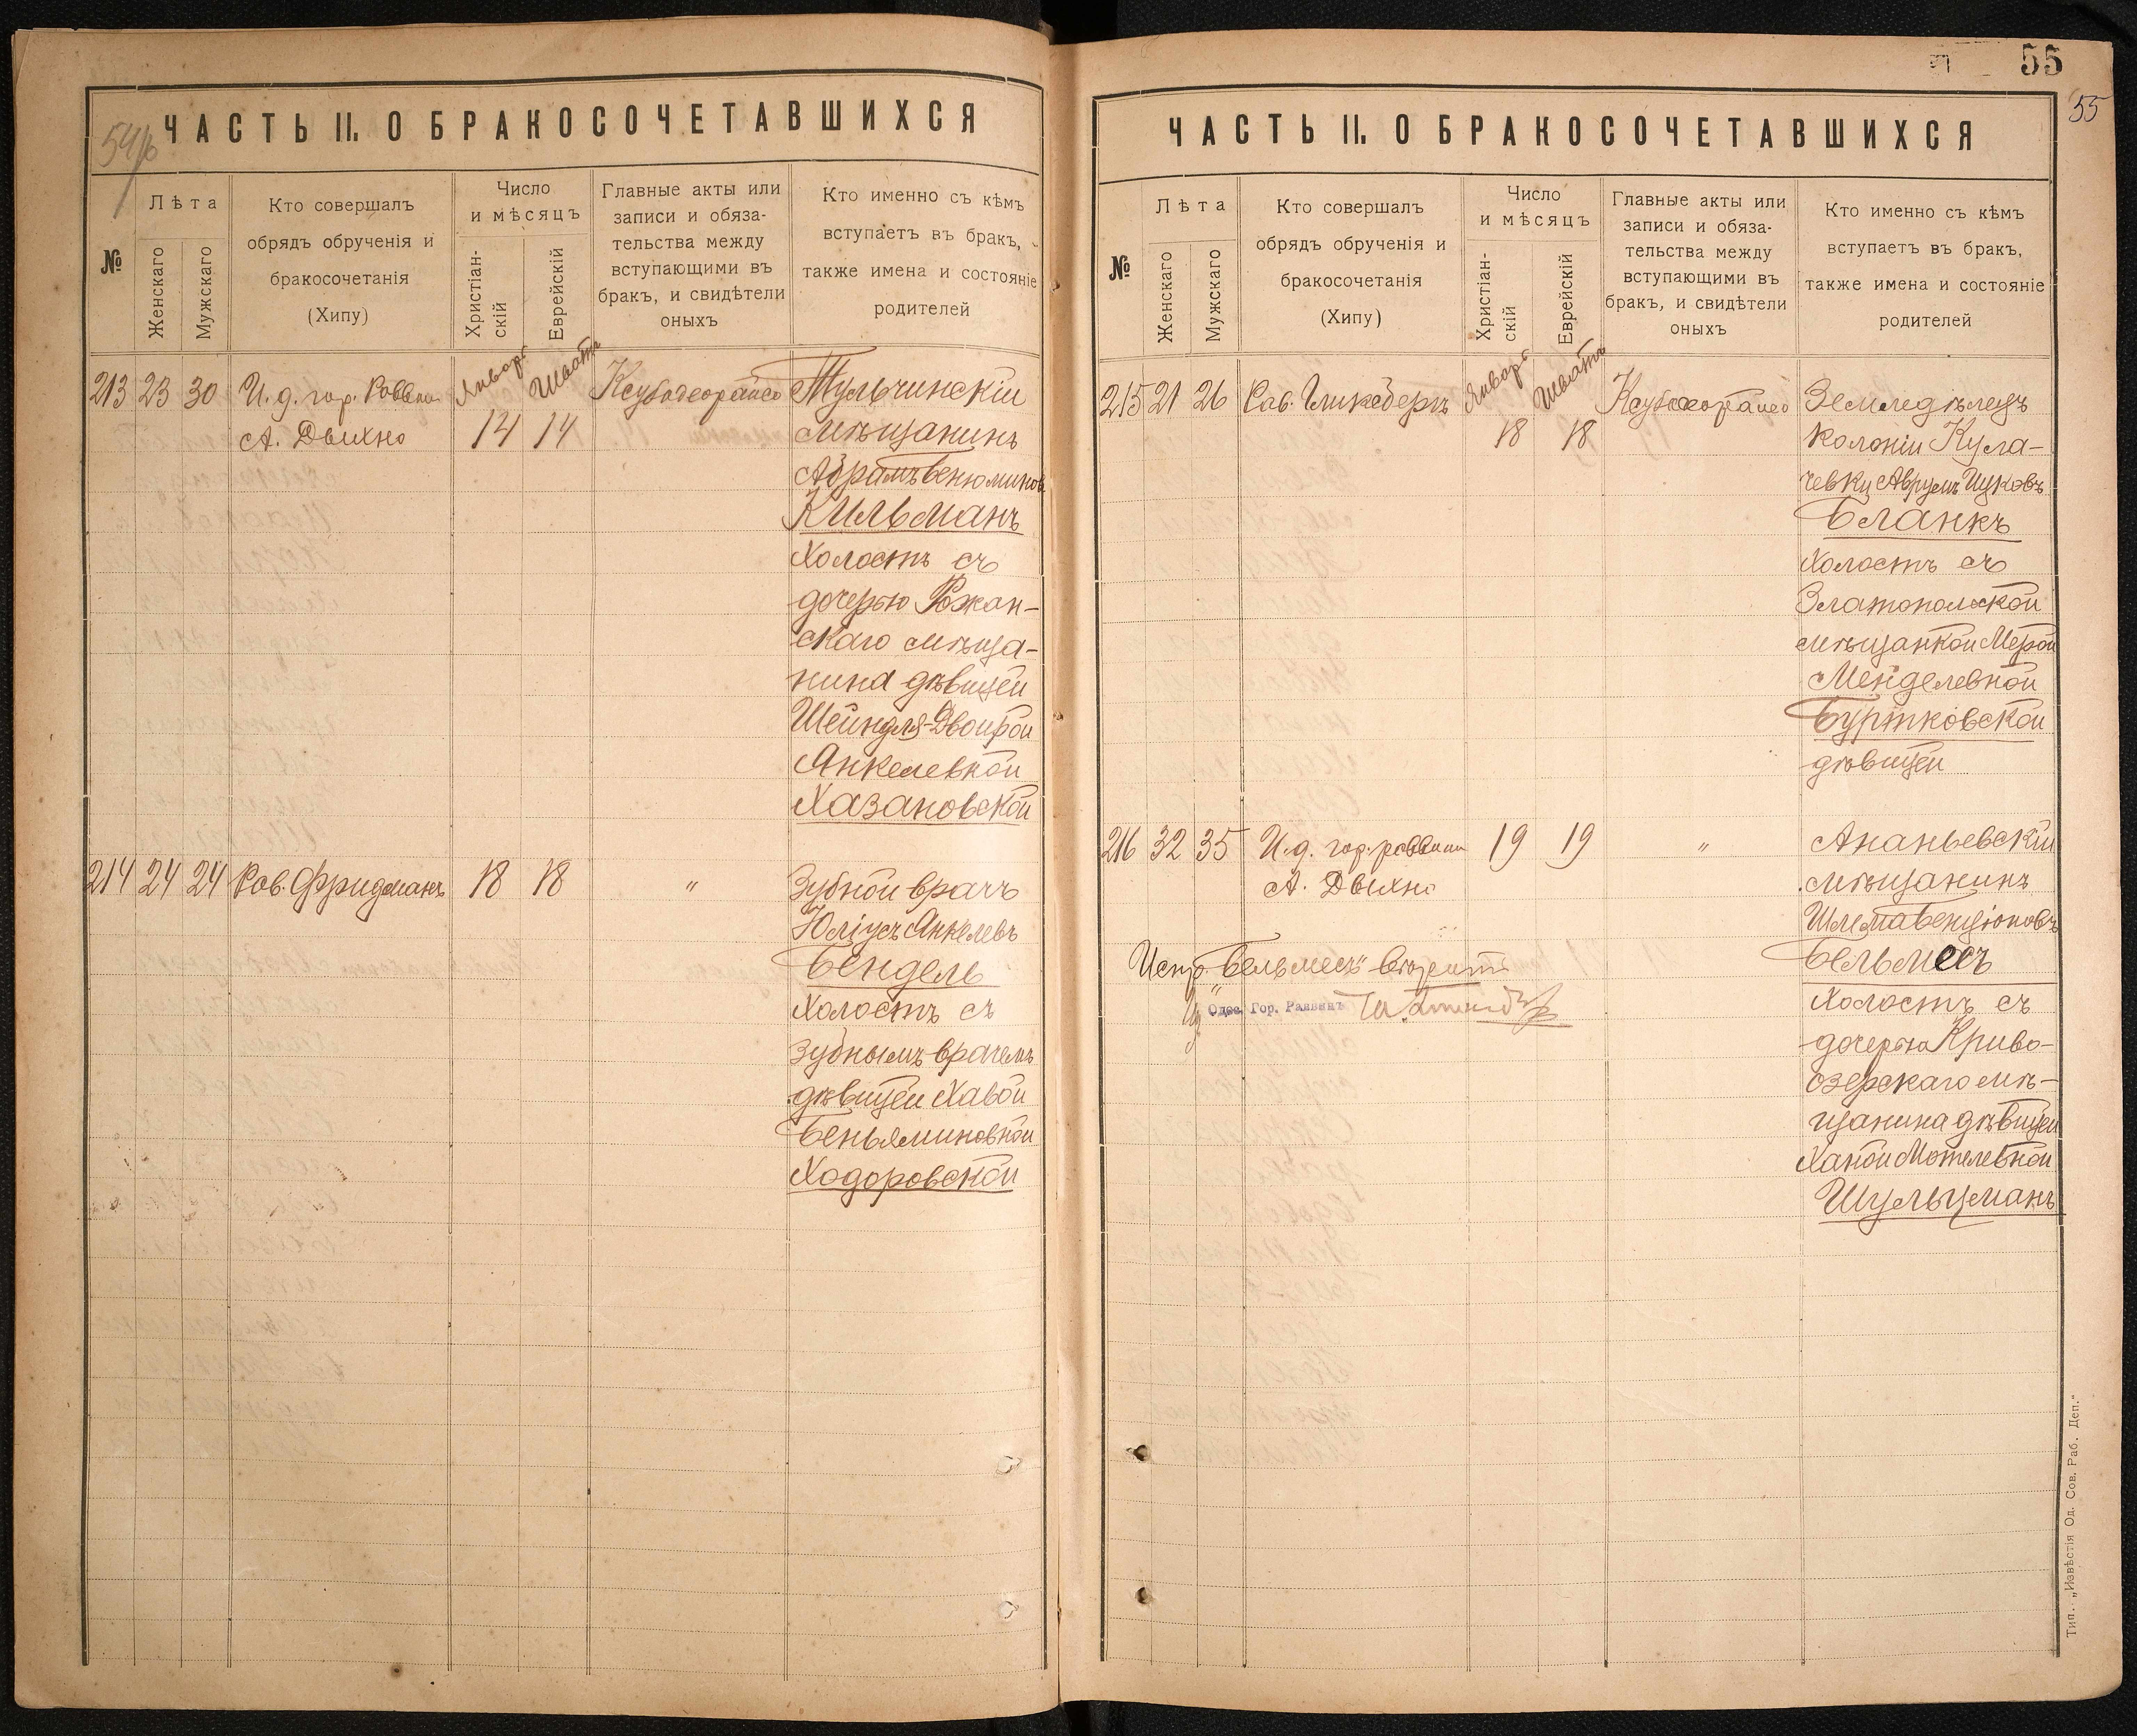 54/б
ЧАСТЬ II. О БРАКОСОЧЕТАВШИХСЯ
№
Лѣта
Женскаго
Мужскаго
Кто совершалъ
обрядъ обрученія и
бракосочетанія
(Хипу)
Число
и мѣсяцъ
Христіан-
скій
Еврейскій
Главные акты или
записи и обяза-
тельства между
вступающими въ
бракъ, и свидѣтели
оныхъ
Кто именно съ кѣмъ
вступаетъ въ бракъ,
также имена и состояніе
родителей
213 23 30 И. д. гор. Раввина
А. Двихно
Январь
14
Шватъ
14
Ксубодеорайсо
Тульчинскій
мѣщанинъ
Абрамъ Бенюминов
Кильманъ
Холостъ съ
дочерью Рожан-
скаго мѣща-
нина дѣвицей
Шейндля-Двойрой
Янкелевной
Хазановской
214 24 24 Рав. Фридманъ 18 18 "
Зубной врачъ
Юліусъ Янкелевъ
Бендель
Холостъ съ
зубнымъ врачемъ
дѣвицей Хавой
Беньяминовной
Ходоровской
55
55
ЧАСТЬ II. О БРАКОСОЧЕТАВШИХСЯ
№
Лѣта
Женскаго
Мужскаго
Кто совершалъ
обрядъ обрученія и
бракосочетанія
(Хипу)
Число
и мѣсяцъ
Христіан-
скій
Еврейскій
Главные акты или
записи и обяза-
тельства между
вступающими въ
бракъ, и свидѣтели
оныхъ
Кто именно съ кѣмъ
вступаетъ въ бракъ,
также имена и состояніе
родителей
215 21 26 Рав. Гликсбергъ
Январь
18
Шватъ
18
Ксубодеорайсо
Земледѣлецъ
колоніи Кула-
чевки Аврумъ Ицковъ
Бланкъ
Холостъ съ
Златопольской
мѣщанкой Мерой
Менделевной
Буртковской
дѣвицей
216 32 35 И. д. гор. раввина
А. Двихно
19 19 "
Ананьевскій
мѣщанинъ
Шлема Бенціоновъ
Бельмесъ
Холостъ съ
дочерью Криво-
озерскаго мѣ-
щанина дѣвицей
Ханой Мотелевной
Шульцманъ
Испр. "Бельмесъ" вѣрить
Одес. Гор. Раввинъ
Тип. „Извѣстія Од. Сов. Раб. Деп."